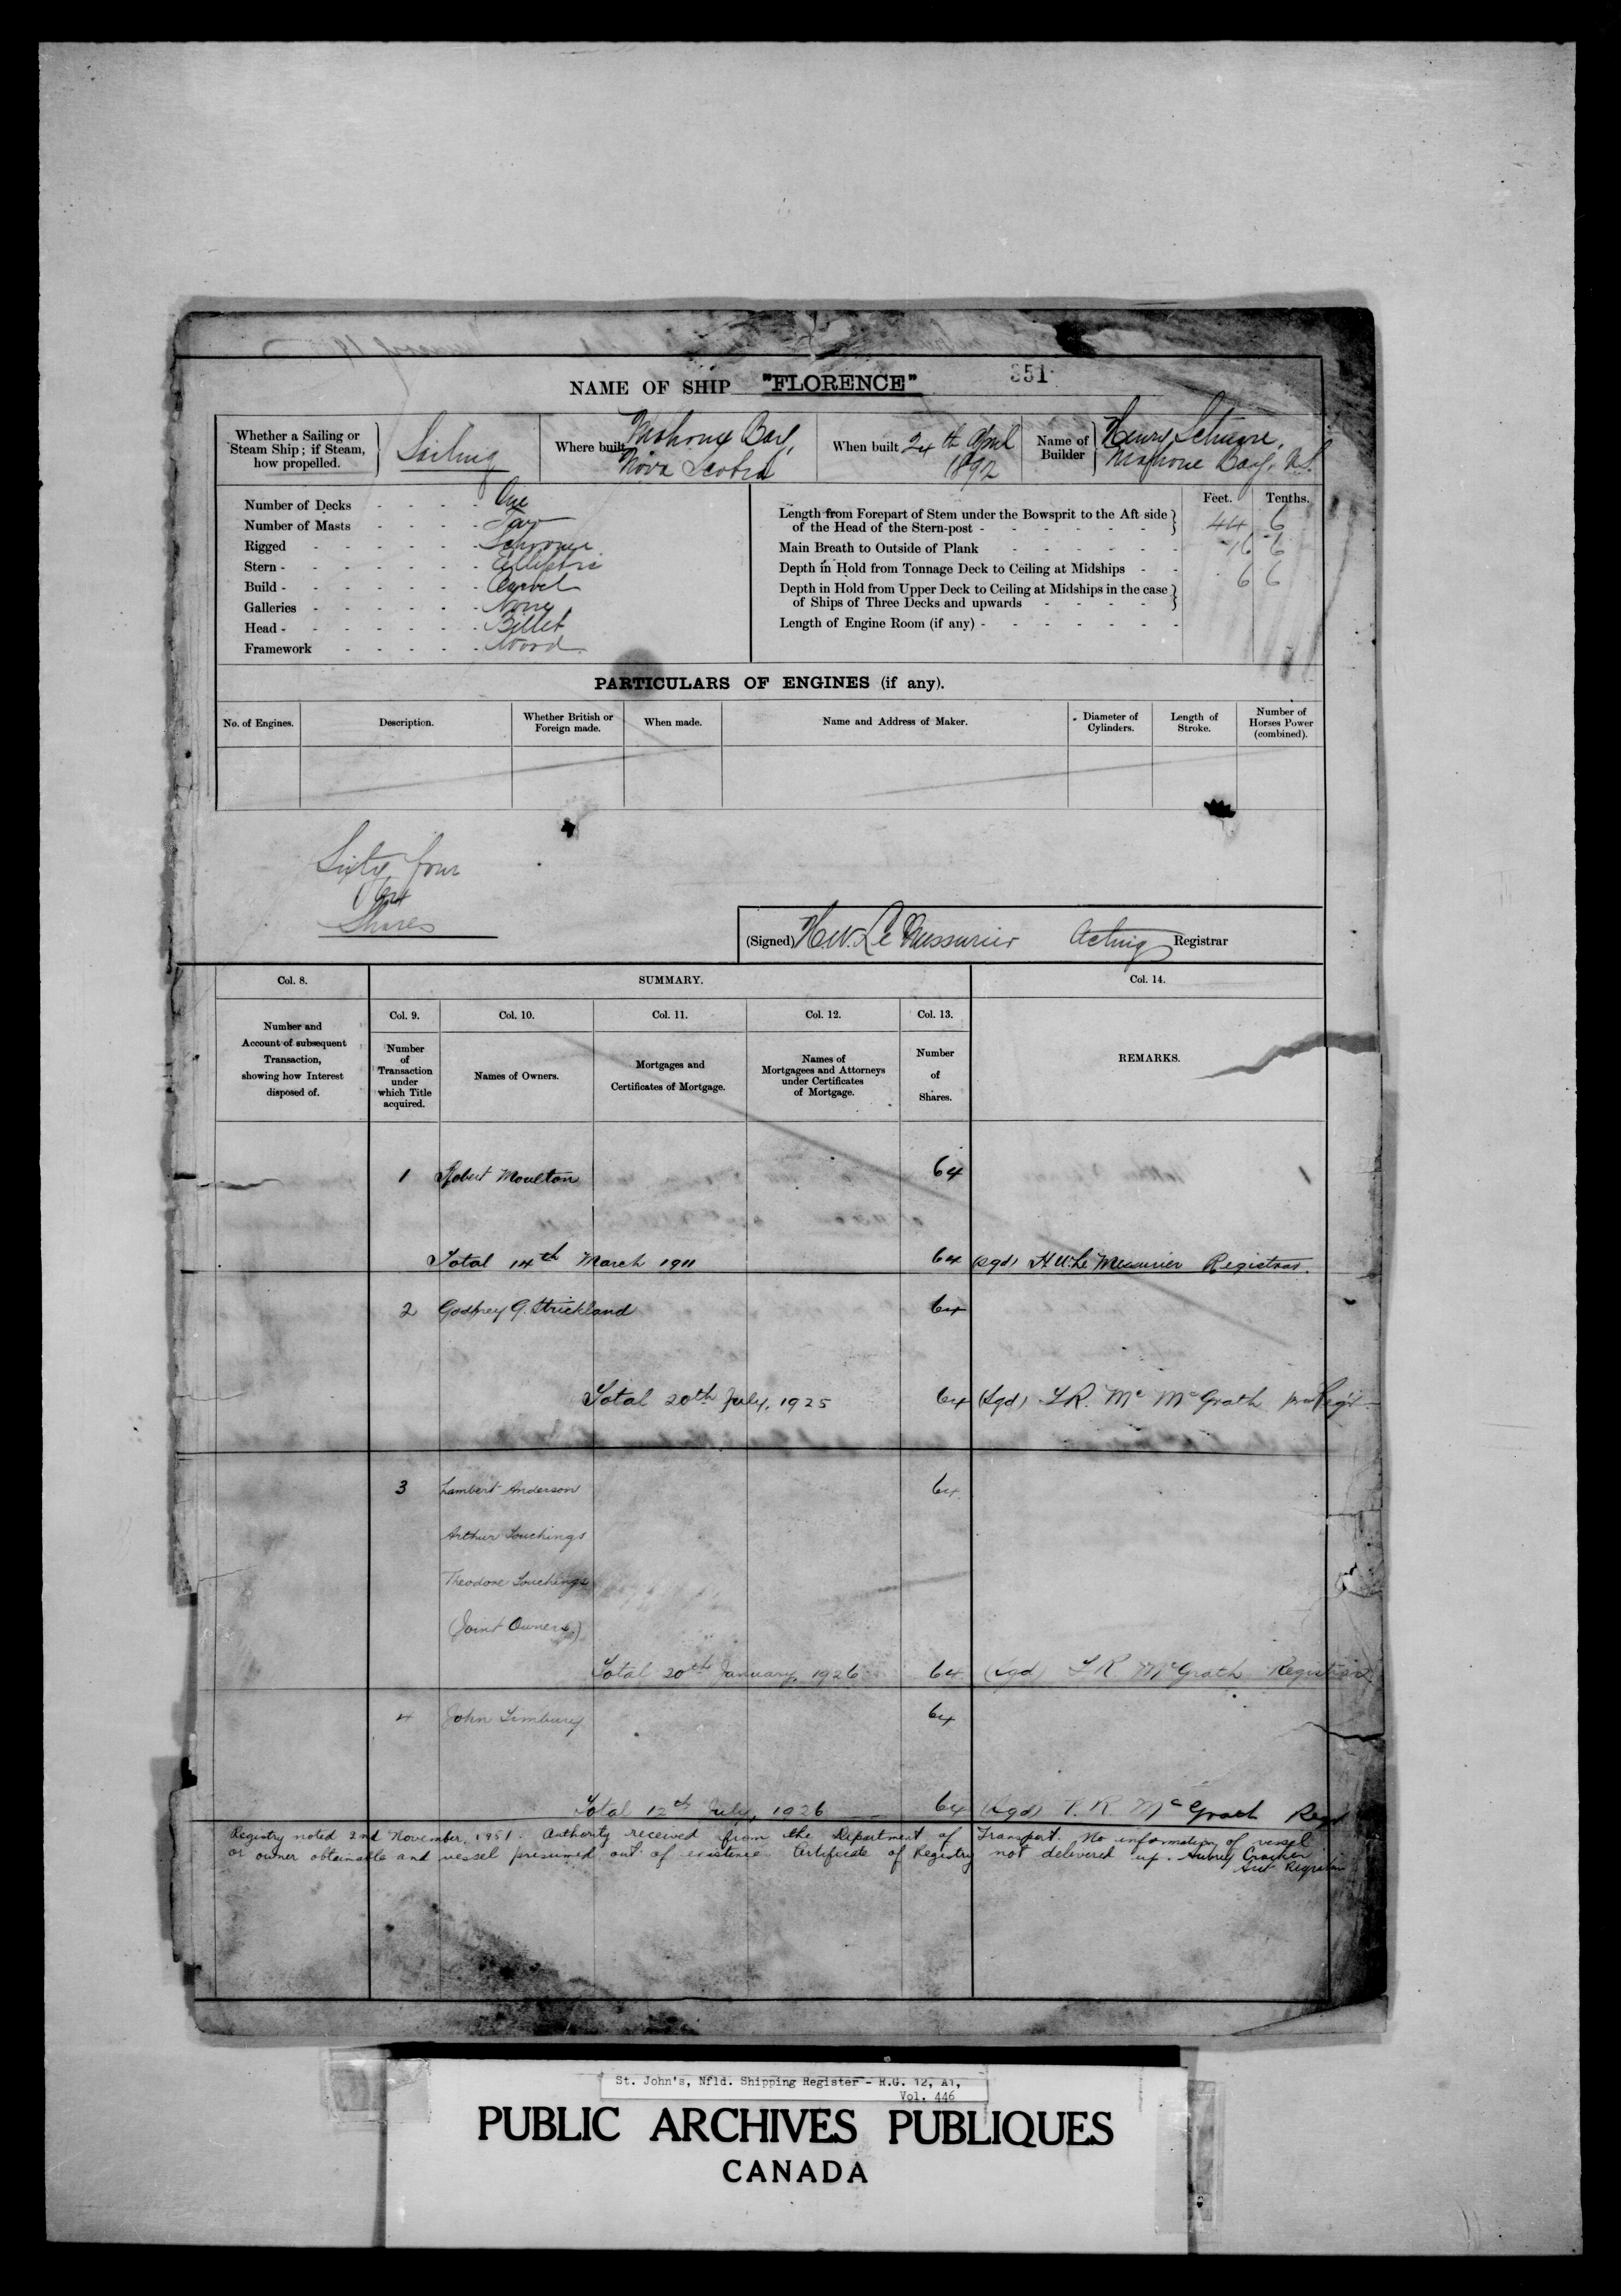 NAME OF SHIP "FLORENCE" 351
Whether a Sailing or
Steam Ship; if Steam,
how propelled.
Sailing
Where built
Mahone Bay,
Nova Scotia
When built 24th April
1892
Name of
Builder
Henry
Mahone Bay, N.S.
Number of Decks - - - - One
Number of Masts - - - - Two
Rigged - - - - - - Schooner
Stern - - - - - - - Elliptic
Build - - - - - - - Carvel
Galleries - - - - - - None
Head - - - - - - - Billet
Framework - - - - - Wood
Feet. Tenths.
Length from Forepart of Stem under the Bowsprit to the Aft side
of the Head of the Stern-post - - - - - - - 44 6
Main Breath to Outside of Plank - - - - - - 16 6
Depth in Hold from Tonnage Deck to Ceiling at Midships - - 6 6
Depth in Hold from Upper Deck to Ceiling at Midships in the case
of Ships of Three Decks and upwards - - - -
Length of Engine Room (if any) - - - - - - -
PARTICULARS OF ENGINES (if any).
No. of Engines.
Description.
Whether British or
Foreign made.
When made.
Name and Address of Maker.
Diameter of
Cylinders.
Length of
Stroke.
Number of
Horses Power
(combined).
Sixty four
/64
Shares
(Signed) H.W. Le Messurier Acting Registrar
Col. 8.
SUMMARY.
Col. 14.
Number and
Account of subsequent
Transaction,
showing how Interest
disposed of.
Col. 9.
Number
of
Transaction
under
which Title
acquired.
Col. 10.
Names of Owners.
Col. 11.
Mortgages and
Certificates of Mortgage.
Col. 12.
Names of
Mortgagees and Attorneys
under Certificates
of Mortgage.
Col. 13.
Number
of
Shares.
REMARKS.
1 Robert Moulton 64
Total 14th March 1911 64 (sgd) H.W. Le Messurier Registrar.
2 Godfrey G. Strickland 64
Total 20th July, 1925 64 (Sgd) Mc McGrath
3 Lambert Anderson 64
Arthur Touchings
Theodore Touchings
(Joint Owners.)
Total 20th January, 1926 64 (sgd) McGrath Registrar
4 John Timbury 64
Total 12th July, 1926 64 (Sgd) McGrath Regr
Registry noted 2nd November, 1951. Authority received from the Department of Transport. No information of vessel
or owner obtainable and vessel presumed out of existence. Certificate of Registry not delivered up. Aubrey Crocker
Registrar
St. John's, Nfld. Shipping Register - R.G. 12, A1,
Vol. 446
PUBLIC ARCHIVES PUBLIQUES
CANADA